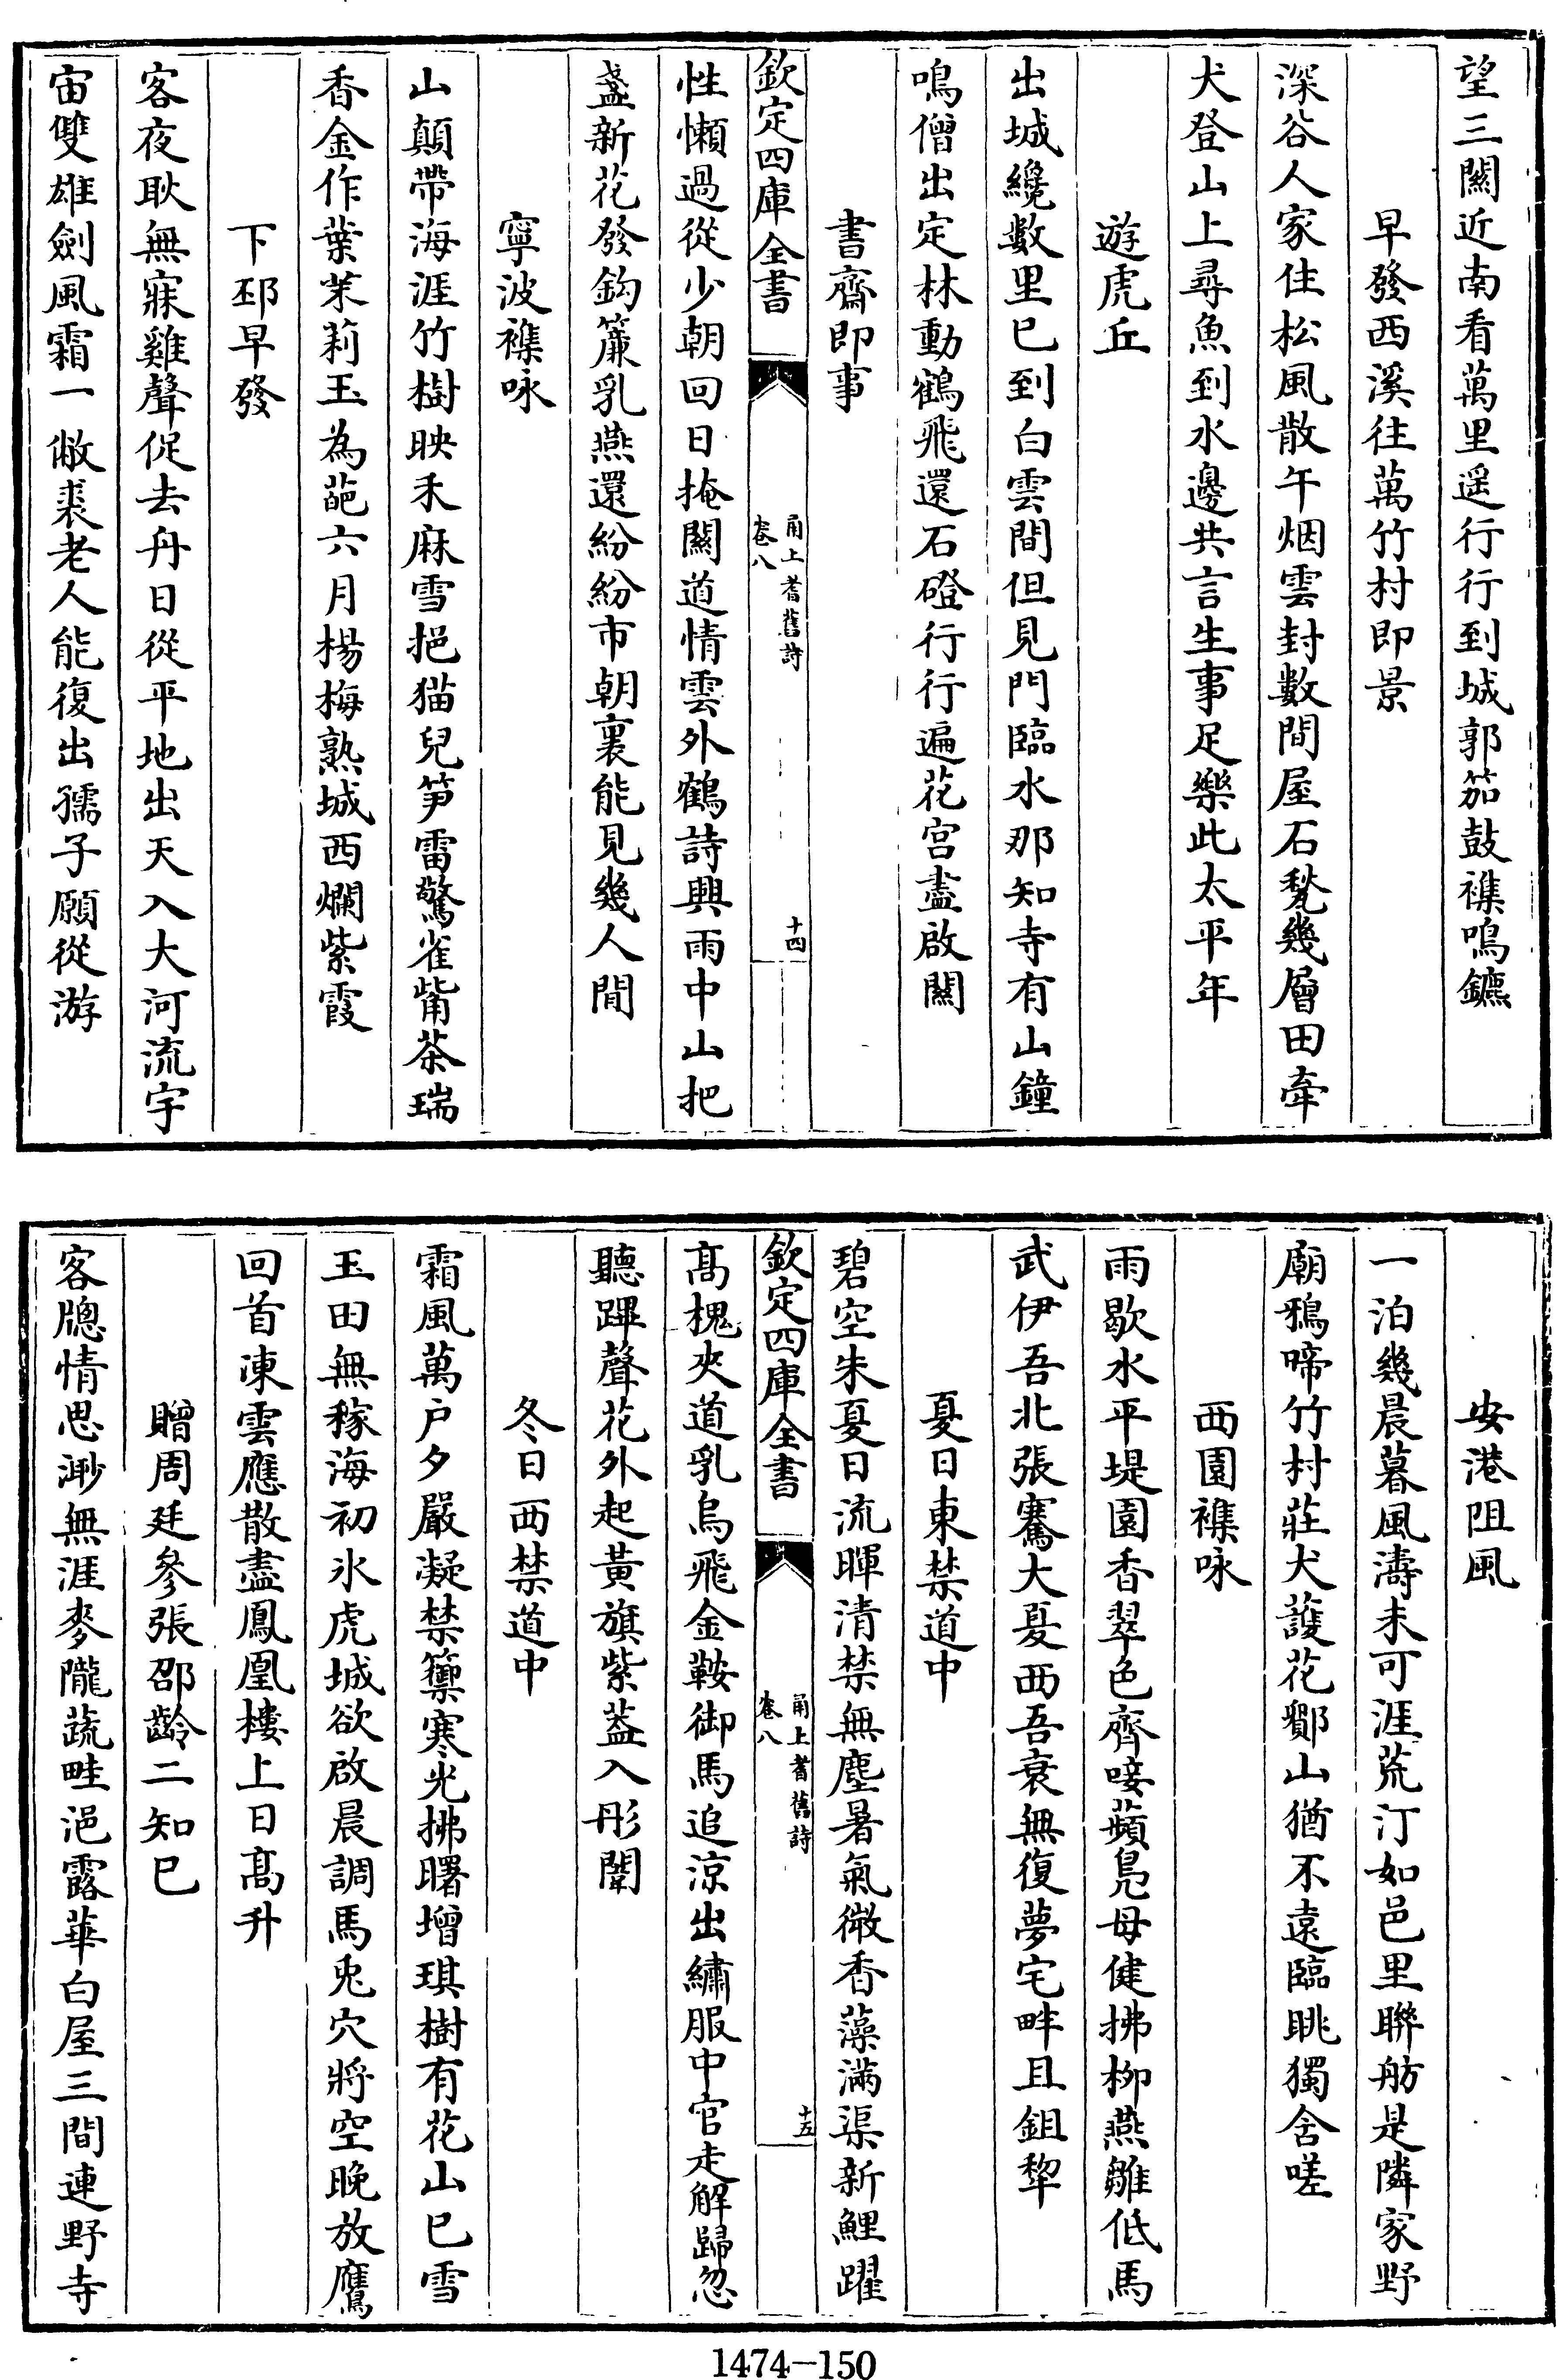 望三關近南看萬里遥行行到城郭笳鼓襍鳴鑣
早發西溪往萬竹村即景
深谷人家住松風散午烟雲封數間屋石甃幾層田牽
犬登山上尋魚到水邊共言生事足樂此太平年
遊虎丘
出城纔數里已到白雲間但見門臨水那知寺有山鐘
鳴僧出定林動鶴飛還石磴行行遍花宫盡啟關
書齋即事
欽定四庫全書
甬上耆舊詩
卷八
十四
性懶過從少朝回日掩關道情雲外鶴詩興雨中山把
盞新花發鈎簾乳燕還紛紛市朝裏能見幾人閒
寧波襍咏
山顛帶海涯竹樹映禾麻雪挹猫兒笋雷驚雀觜茶瑞
香金作葉茉莉玉為葩六月楊梅熟城西爛紫霞
下邳早發
客夜耿無寐雞聲促去舟日從平地出天入大河流宇
宙雙雄劍風霜一敝裘老人能復出孺子願從游
安港阻風
一泊幾晨暮風濤未可涯荒汀如邑里聯舫是隣家野
廟鴉啼竹村莊犬護花鄮山猶不遠臨眺獨含嗟
西園襍咏
雨歇水平堤園香翠色齊唼蘋鳧母健拂栁燕雛低馬
武伊吾北張騫大夏西吾衰無復夢宅畔且鉏犂
夏日東禁道中
碧空朱夏日流暉清禁無塵暑氣微香藻滿渠新鯉躍
欽定四庫全書
甬上耆舊詩
卷八
十五
髙槐夾道乳烏飛金鞍御馬追涼出繡服中官走解歸忽
聽蹕聲花外起黃旗紫葢入彤闈
冬日西禁道中
霜風萬户夕嚴凝禁籞寒光拂曙增琪樹有花山已雪
玉田無稼海初氷虎城欲啟晨調馬兎穴將空晚放鷹
回首凍雲應散盡鳳凰樓上日髙升
贈周廷參張邵齡二知已
客牕情思渺無涯麥隴蔬畦浥露華白屋三間連野寺
1474-150